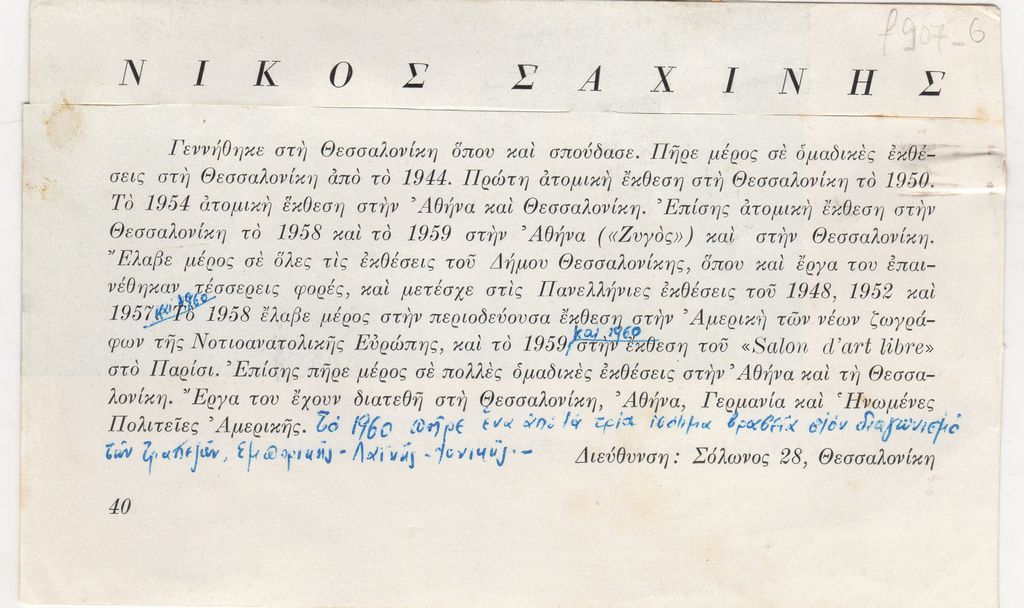 f 907-6
ΝΙΚΟΣ ΣΑΧΙΝΗΣ
Γεννήθηκε στὴ Θεσσαλονίκη ὅπου καὶ σπούδασε. Πῆρε μέρος σὲ ὁμαδικὲς ἐκθέ-
σεις στὴ Θεσσαλονίκη ἀπὸ τὸ 1944. Πρώτη ἀτομικὴ ἔκθεση στὴ Θεσσαλονίκη τὸ 1950.
Τὸ 1954 ἀτομικὴ ἔκθεση στὴν Ἀθήνα καὶ Θεσσαλονίκη. Ἐπίσης ἀτομικὴ ἔκθεση στὴν
Θεσσαλονίκη τὸ 1958 καὶ τὸ 1959 στὴν Ἀθήνα («Ζυγὸς») καὶ στὴν Θεσσαλονίκη.
Ἔλαβε μέρος σὲ ὅλες τὶς ἐκθέσεις τοῦ Δήμου Θεσσαλονίκης, ὅπου καὶ ἔργα του ἐπαι-
νέθηκαν τέσσερεις φορές, καὶ μετέσχε στὶς Πανελλήνιες ἐκθέσεις τοῦ 1948, 1952 καὶ
1957 καὶ 1960 Τὸ 1958 ἔλαβε μέρος στὴν περιοδεύουσα ἔκθεση στὴν Ἀμερικὴ τῶν νέων ζωγρά-
φων τῆς Νοτιοανατολικῆς Εὐρώπης, καὶ τὸ 1959 καὶ 1960 στὴν ἔκθεση τοῦ «Salon d'art libre»
στὸ Παρίσι. Ἐπίσης πῆρε μέρος σὲ πολλὲς ὁμαδικὲς ἐκθέσεις στὴν Ἀθήνα καὶ τὴ Θεσσα-
λονίκη. Ἔργα του ἔχουν διατεθῆ στὴ Θεσσαλονίκη, Ἀθήνα, Γερμανία καὶ Ἡνωμένες
Πολιτεῖες Ἀμερικῆς. Τὸ 1960 πῆρε ἕνα ἀπὸ τὰ τρία ἰσότιμα βραβεῖα στὸν διαγωνισμὸ
τῶν τραπεζῶν, Ἐμπορικῆς - Λαϊκῆς - Ἰονικῆς. -
Διεύθυνση: Σόλωνος 28, Θεσσαλονίκη
40